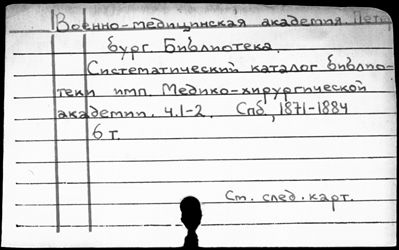 Военно-медицинская академия. Петер
бург. Библиотека.
Систематический каталог библио-
теки имп. Медико-хирургической
академии. Ч.1-2. Спб, 1871-1884
6 т.
См. след. карт.